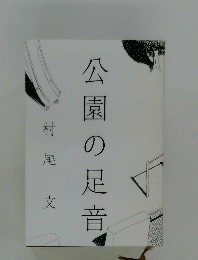 公園の足音
村尾文